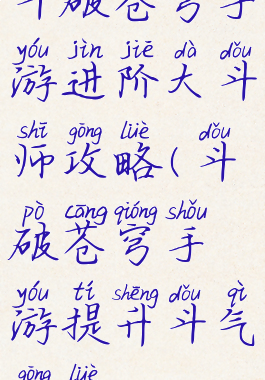 斗破苍穹手
yóu jìn jiē dà dǒu
游进阶大斗
shī gōng lüè dǒu
师攻略(斗
pò cāng qióng shǒu
破苍穹手
yóu tí shēng dǒu qì
游提升斗气
gōng lüè